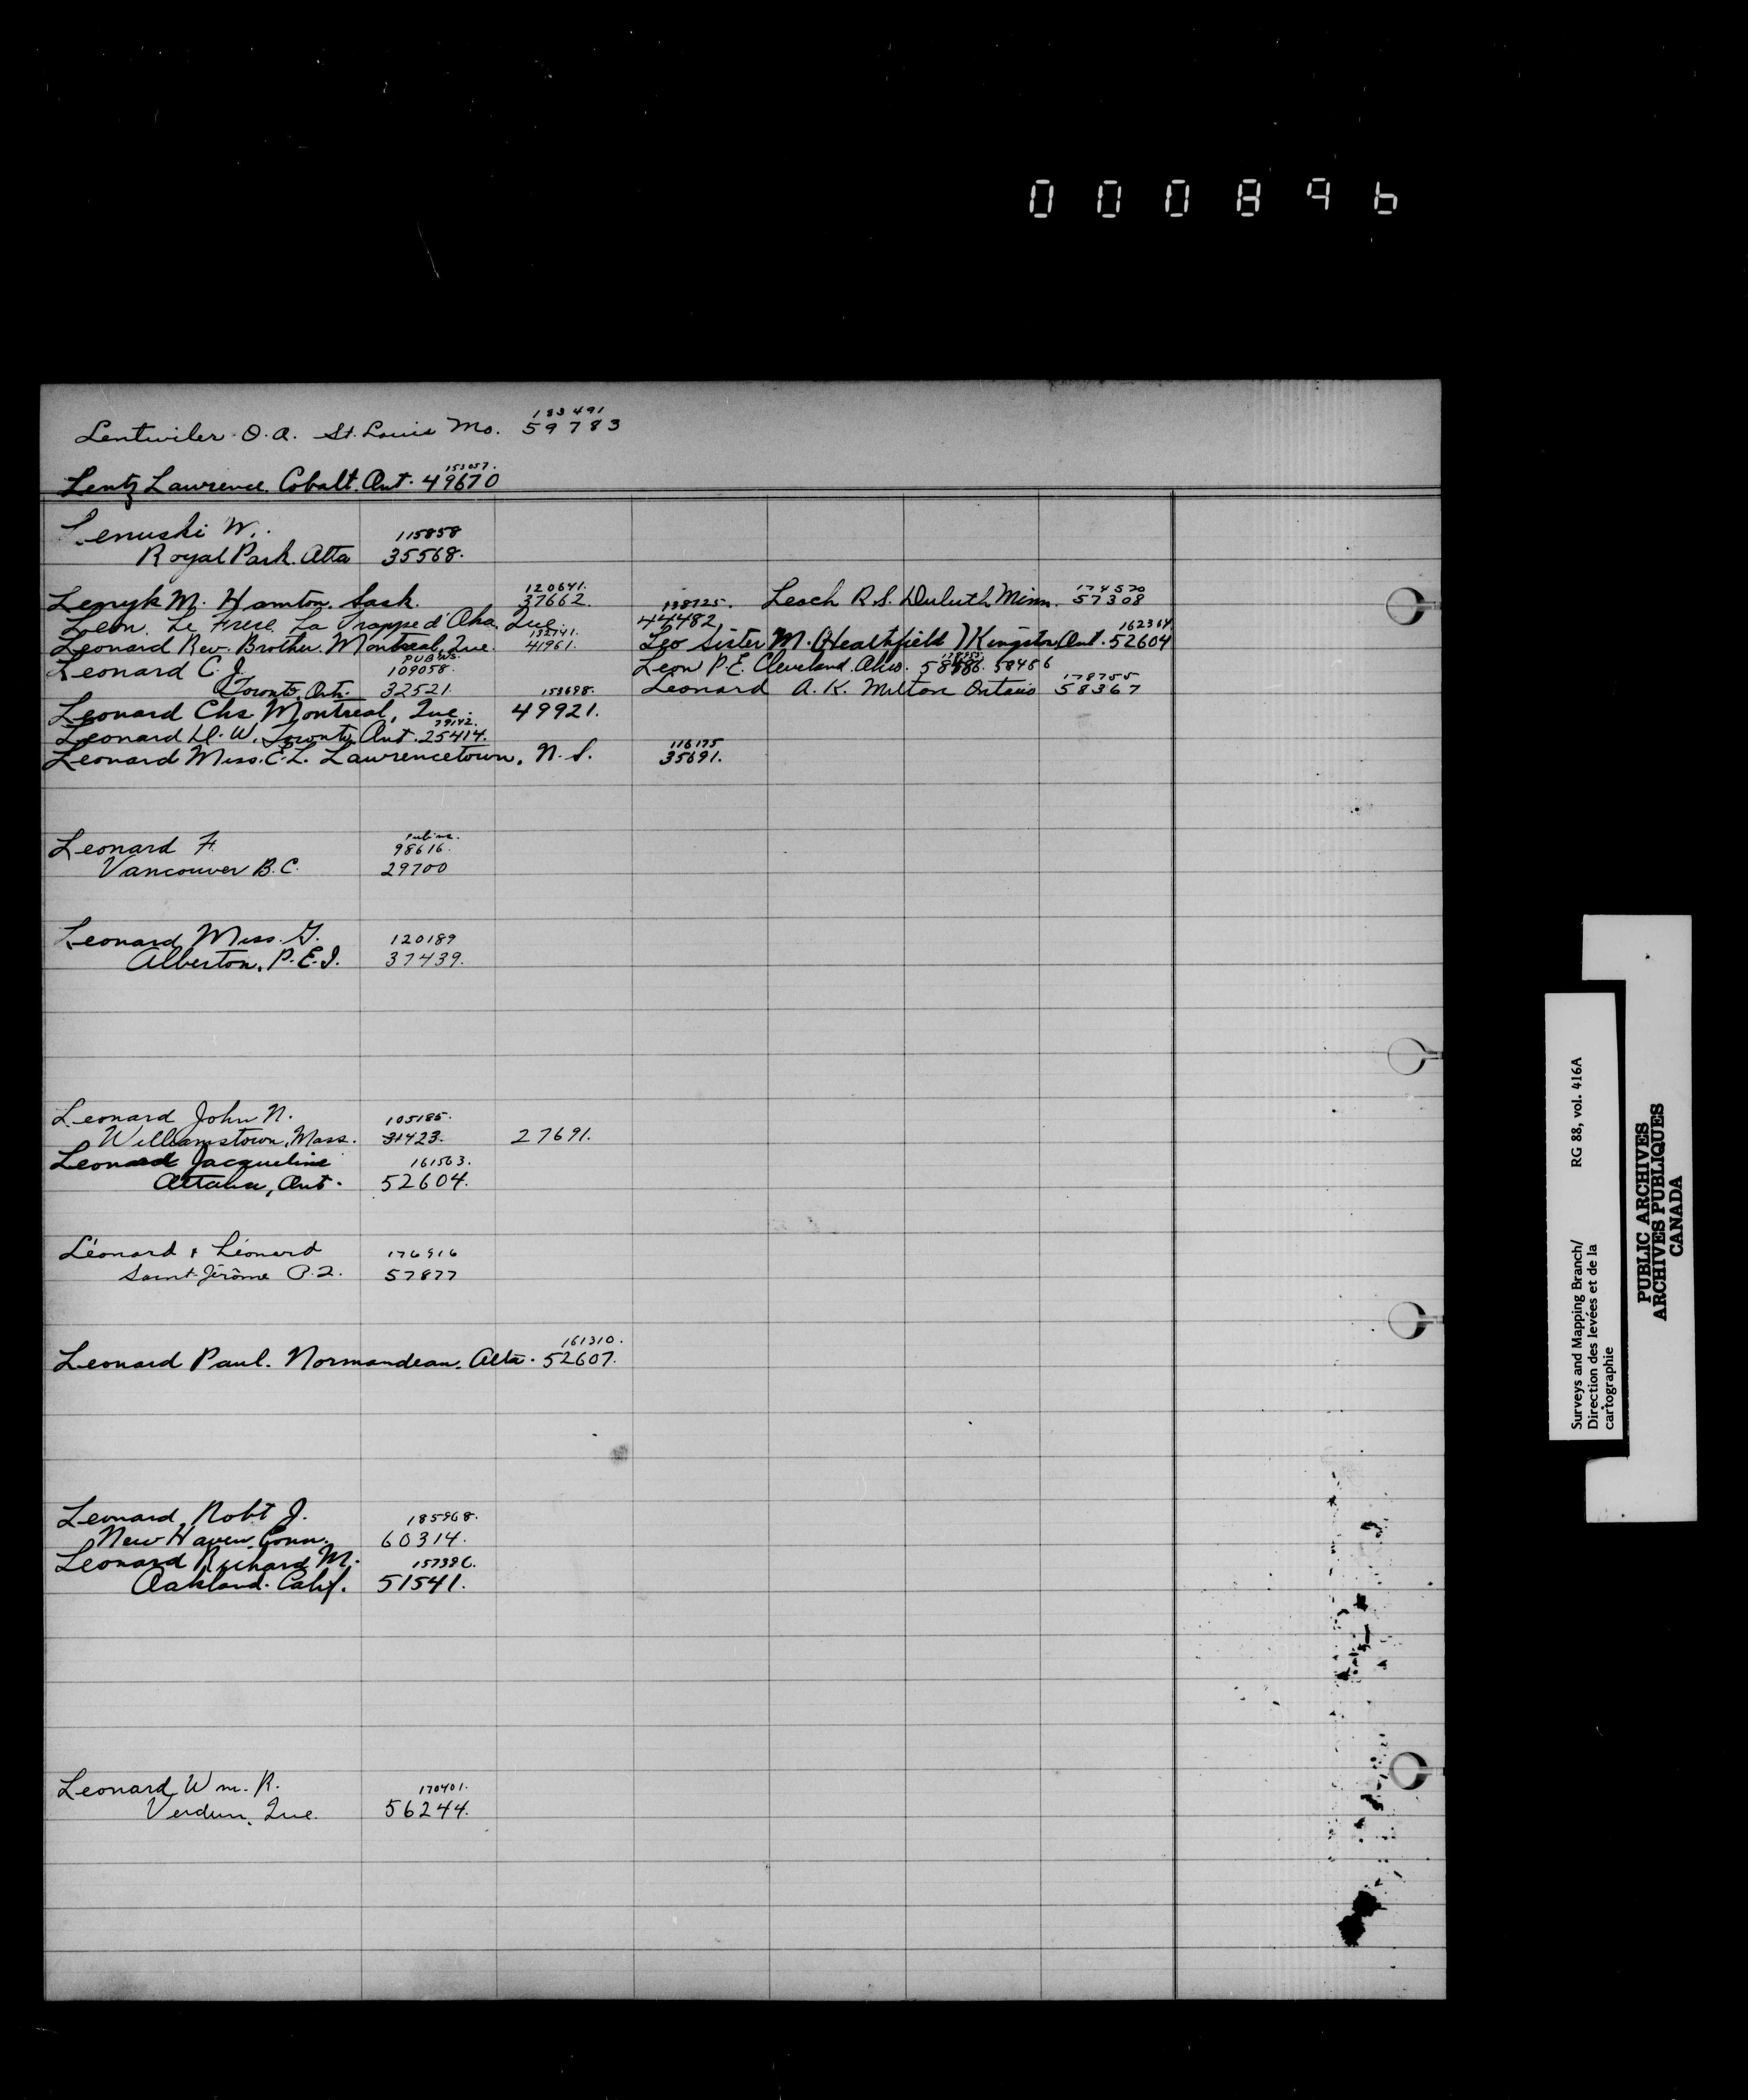 000896
183491
Lentwiler O.A. St. Louis Mo. 59783
153057.
Lentz Lawrence. Cobalt. Ont. 49670
Lenuski W. 115858
Royal Park. Alta 35568.
120641. 174570
Lenyk M. Hamton. Sask. 37662. 138725. Leoch R.S. Duluth Minn. 57308
Leon. Le Frere. La Trappe d'Oka. Que. 44482.
132141. 162364.
Leonard Rev. Brother. Montreal, Que. 41961. Leo Sister M. (Heathfield) Kingston Ont. 52604
PUB WS.
Leonard C. J. 109058. Leon P.E. Cleveland. Ohio. 58486
Toronto, Ont. 32521. 153698. Leonard A. K. Milton Ontario 178755 58367
Leonard Chs. Montreal, Que. 49921.
79142.
Leonard D. W. Toronto, Ont. 25414.
116175
Leonard Miss. E.L. Lawrencetown, N.S. 35691.
Leonard F. 98616.
Vancouver B.C. 29700
Leonard Miss. G. 120189
Alberton, P.E.I. 37439.
Leonard John N. 105185.
Williamstown, Mass. 31423. 27691.
Leonard Jacqueline 161563.
Ottawa, Ont. 52604.
Léonard & Léonard 176916
Saint-Jérôme P.Q. 57877
161310.
Leonard Paul. Normandeau. Alta. 52607.
Leonard, Robt J. 185968.
New Haven, Conn. 60314.
Leonard Richard M. 157396.
Oakland. Calif. 51541.
Leonard Wm. R. 170401.
Verdun, Que. 56244.
Surveys and Mapping Branch/ RG 88, vol. 416A
Direction des levées et de la
cartographie
PUBLIC ARCHIVES
ARCHIVES PUBLIQUES
CANADA